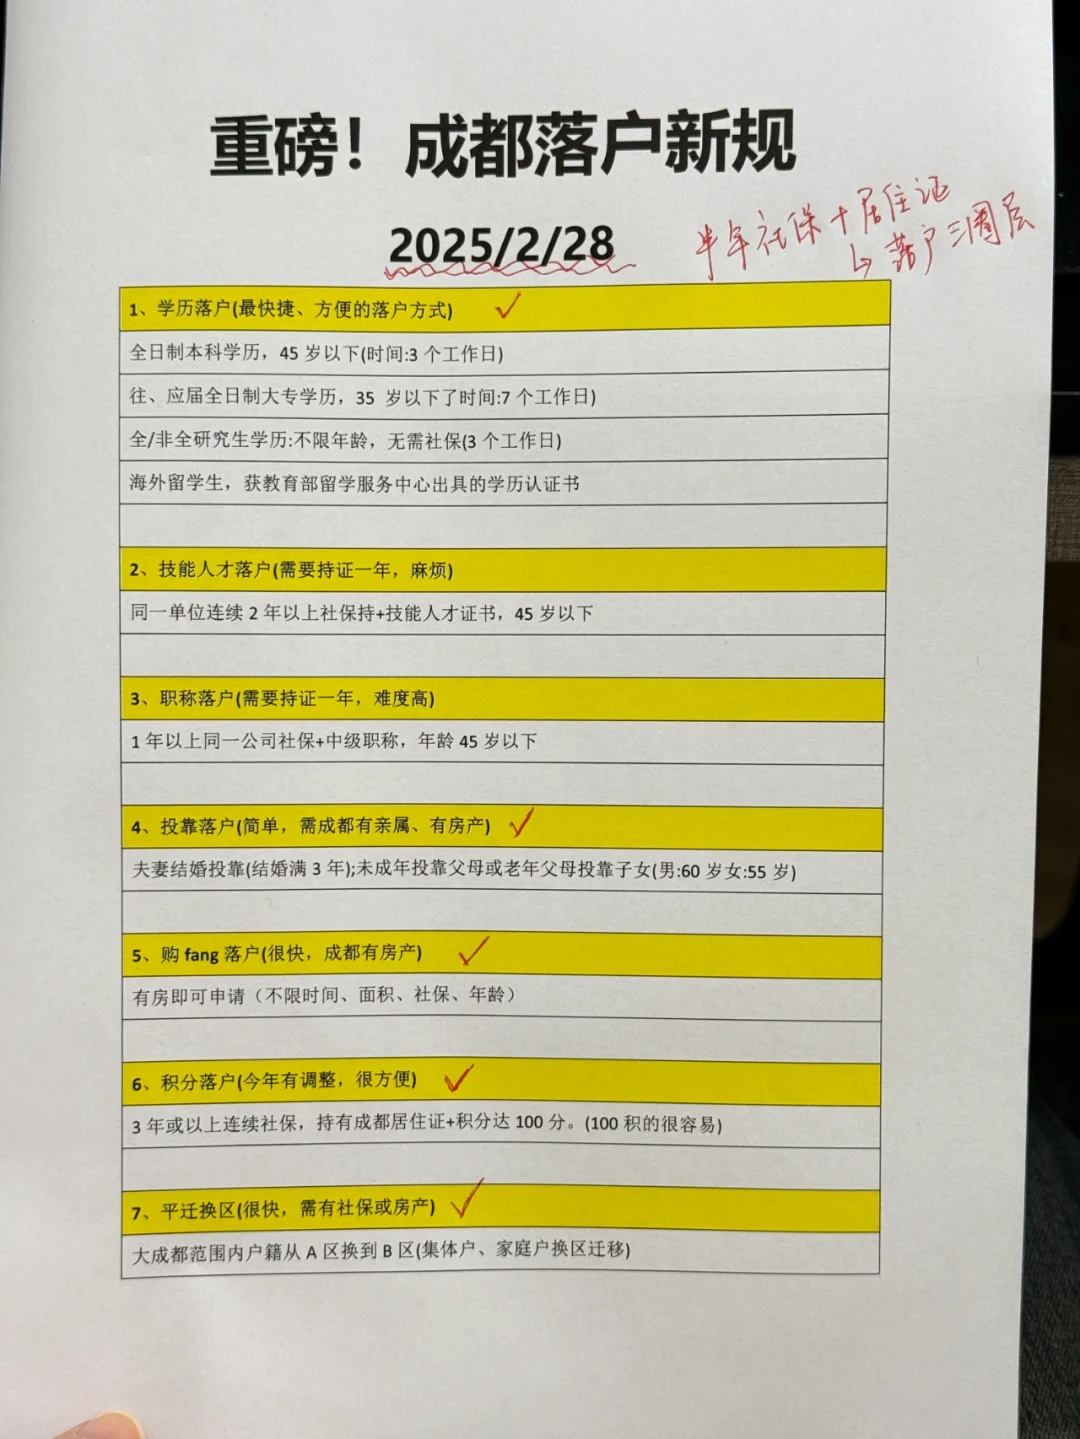 重磅！成都落户新规
2025/2/28
半年社保+居住证
↳落户三圈层
1、学历落户(最快捷、方便的落户方式)
全日制本科学历，45 岁以下(时间:3 个工作日)
往、应届全日制大专学历，35 岁以下了时间:7 个工作日)
全/非全研究生学历:不限年龄，无需社保(3 个工作日)
海外留学生，获教育部留学服务中心出具的学历认证书
2、技能人才落户(需要持证一年，麻烦)
同一单位连续 2 年以上社保持+技能人才证书，45 岁以下
3、职称落户(需要持证一年，难度高)
1 年以上同一公司社保+中级职称，年龄 45 岁以下
4、投靠落户(简单，需成都有亲属、有房产)
夫妻结婚投靠(结婚满 3 年);未成年投靠父母或老年父母投靠子女(男:60 岁女:55 岁)
5、购 fang 落户(很快，成都有房产)
有房即可申请（不限时间、面积、社保、年龄）
6、积分落户(今年有调整，很方便)
3 年或以上连续社保，持有成都居住证+积分达 100 分。(100 积的很容易)
7、平迁换区(很快，需有社保或房产)
大成都范围内户籍从 A 区换到 B 区(集体户、家庭户换区迁移)